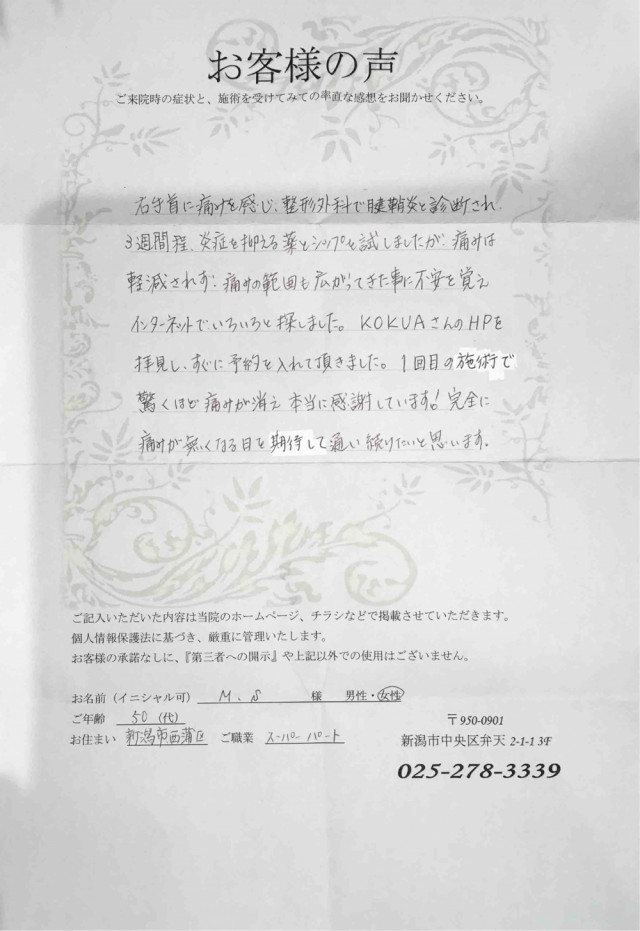 お客様の声
ご来院時の症状と、施術を受けてみての率直な感想をお聞かせください。
右手首に痛みを感じ、整形外科で腱鞘炎と診断され
3週間程、炎症を抑える薬とシップを試しましたが、痛みは
軽減されず、痛みの範囲も広がってきた事に不安を覚え
インターネットでいろいろと探しました。KOKUAさんのHPを
拝見し、すぐに予約を入れて頂きました。1回目の施術で
驚くほど痛みが消え本当に感謝しています!完全に
痛みが無くなる日を期待して通い続けたいと思います。
ご記入いただいた内容は当院のホームページ、チラシなどで掲載させていただきます。
個人情報保護法に基づき、厳重に管理いたします。
お客様の承諾なしに、『第三者への開示』や上記以外での使用はございません。
お名前（イニシャル可） M.S 様 男性・女性
ご年齢 50（代）
お住まい 新潟市西蒲区 ご職業 スーパーパート
〒950-0901
新潟市中央区弁天 2-1-1 3F
025-278-3339